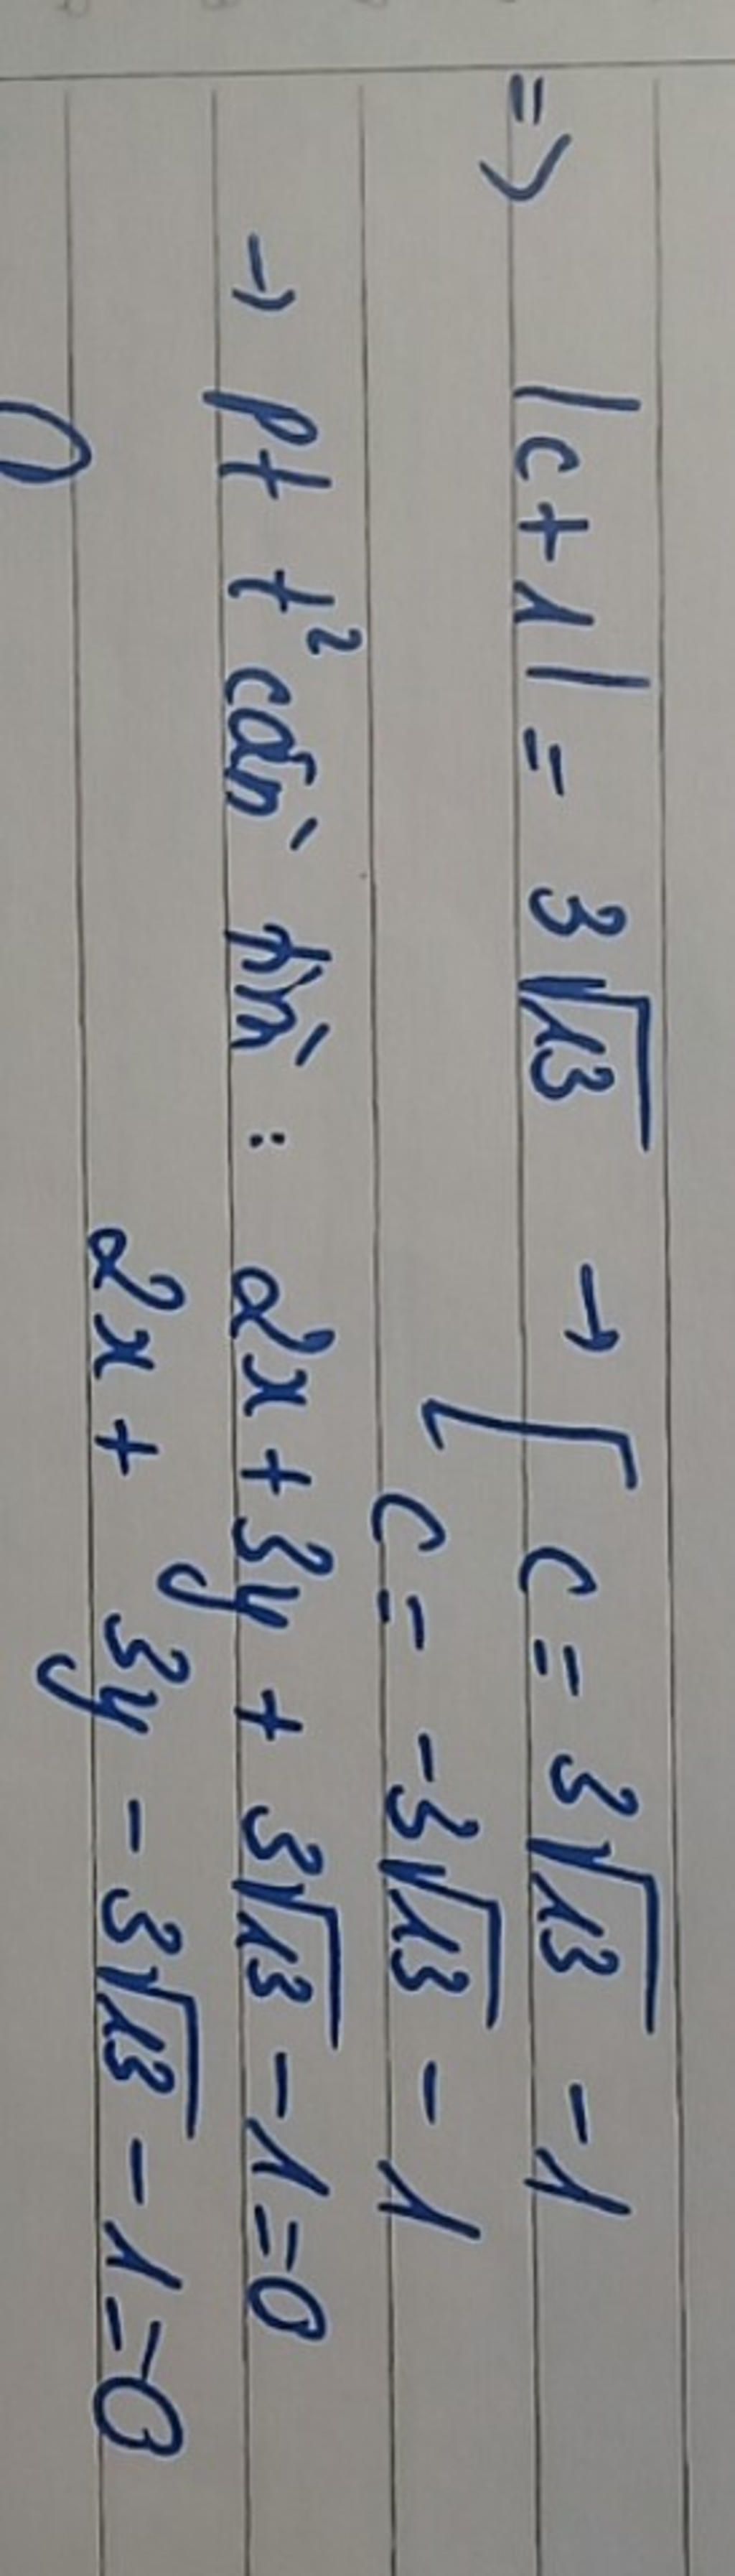 => |c+1| = 3√13 → [ c = 3√13 - 1
c = -3√13 - 1
→ pt t² cần tìm : 2x + 3y + 3√13 - 1 = 0
2x + 3y - 3√13 - 1 = 0